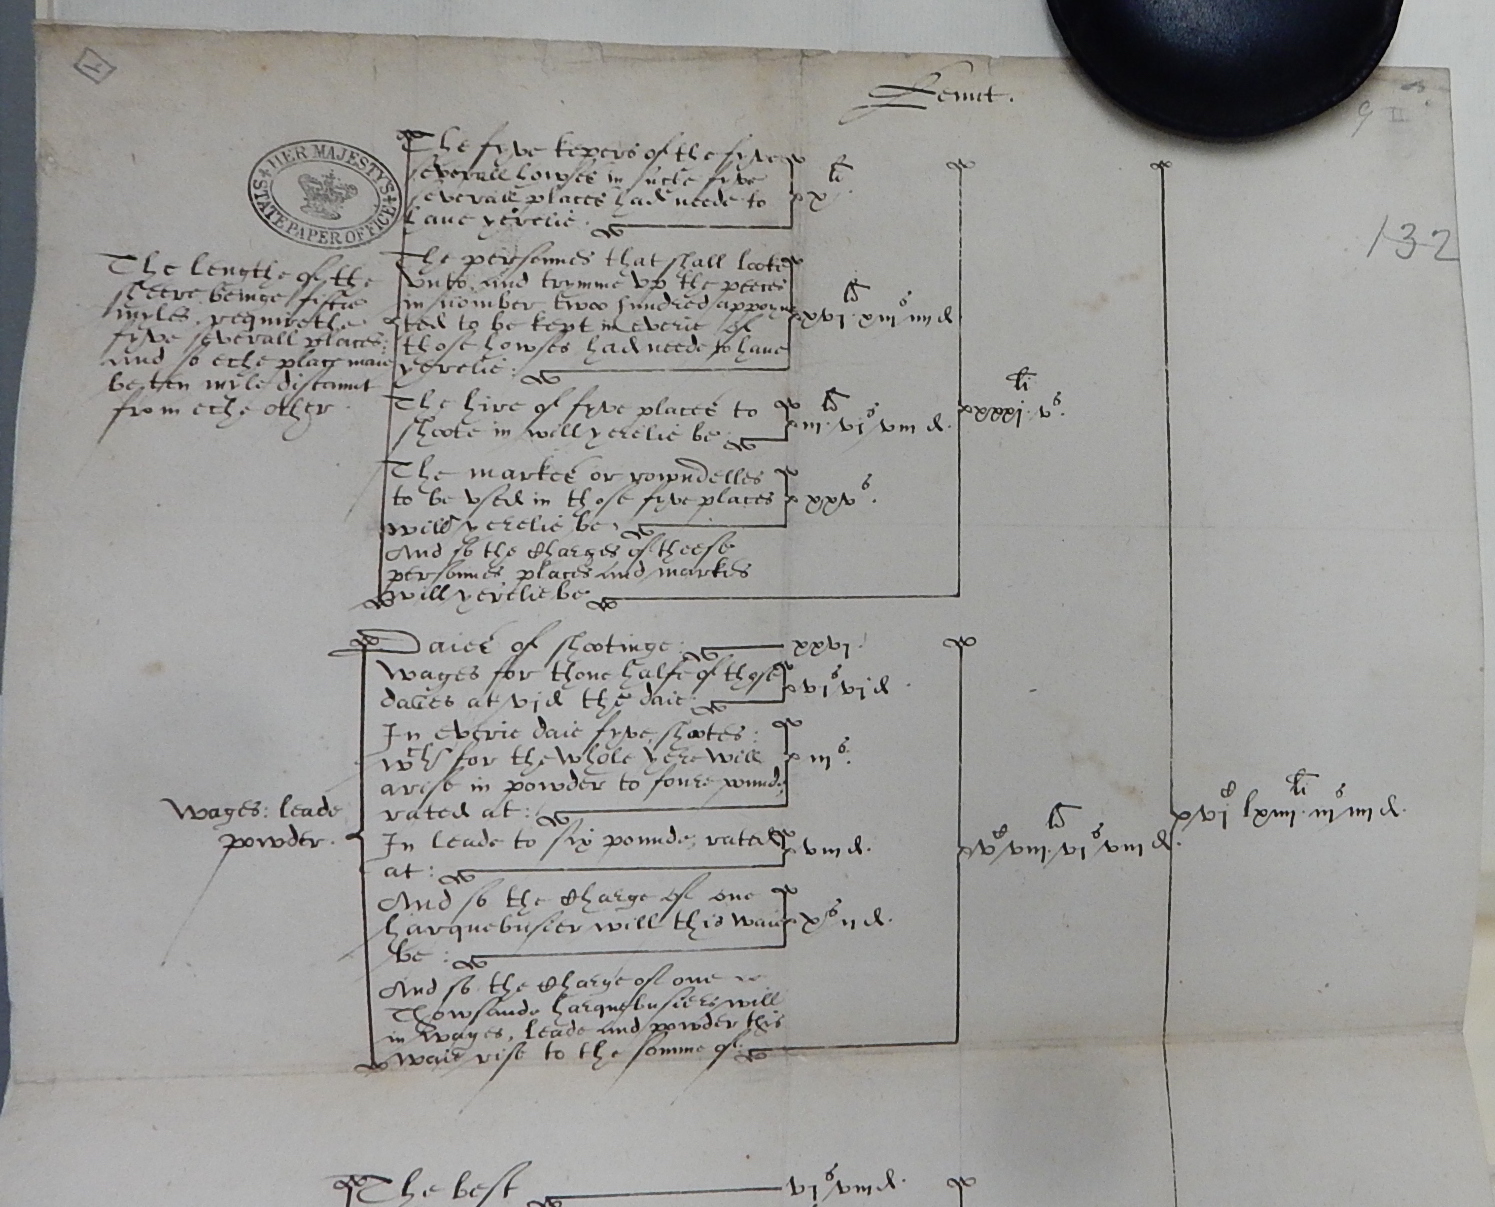 Kennt.
9 II
132
HER MAJESTY'S STATE PAPER OFFICE
The fyve kepers of the fyve
severall howses in suche fyve
severall places had neede to
have yerelie.
x li
The lengthe of the
sheere beinge fiftie
myles, requirethe
fyve severall places:
and so eche place maie
be ten myle distannt
from eche other.
The personnes that shall looke
vnto, and trymme vp the peeces
in nomber twoo hundred appoyn
ted to be kept in everie of
those howses had neede to have
yerelie:
xvj li xiij s iiij d.
The hire of fyve places to
shoote in will yerelie be:
iij li vj s viij d.
xxxj li v s.
The markes or rowndelles
to be vsed in those fyve places
will yerelie be,
xxv s.
And so the charges of theese
personnes places and markes
will yerelie be
Daies of shootinge:
xxvj.
Wages for thone halfe of those
daies at vj d the daie:
vj s vj d.
In everie daie fyve shootes:
wch for the whole yere will
arise in powder to foure pounde
rated at:
iij s.
Wages: leade
powder.
In leade to six pounde; rated
at:
viij d.
And so the charge of one
harquebusier will this waie
be:
x s ij d.
And so the charge of one
Thowsande harquebusiers will
in wages, leade and powder this
waie rise to the somme of:
v c viij li vj s viij d.
vj c lxiij li iij s iiij d.
The best
vj s viij d.